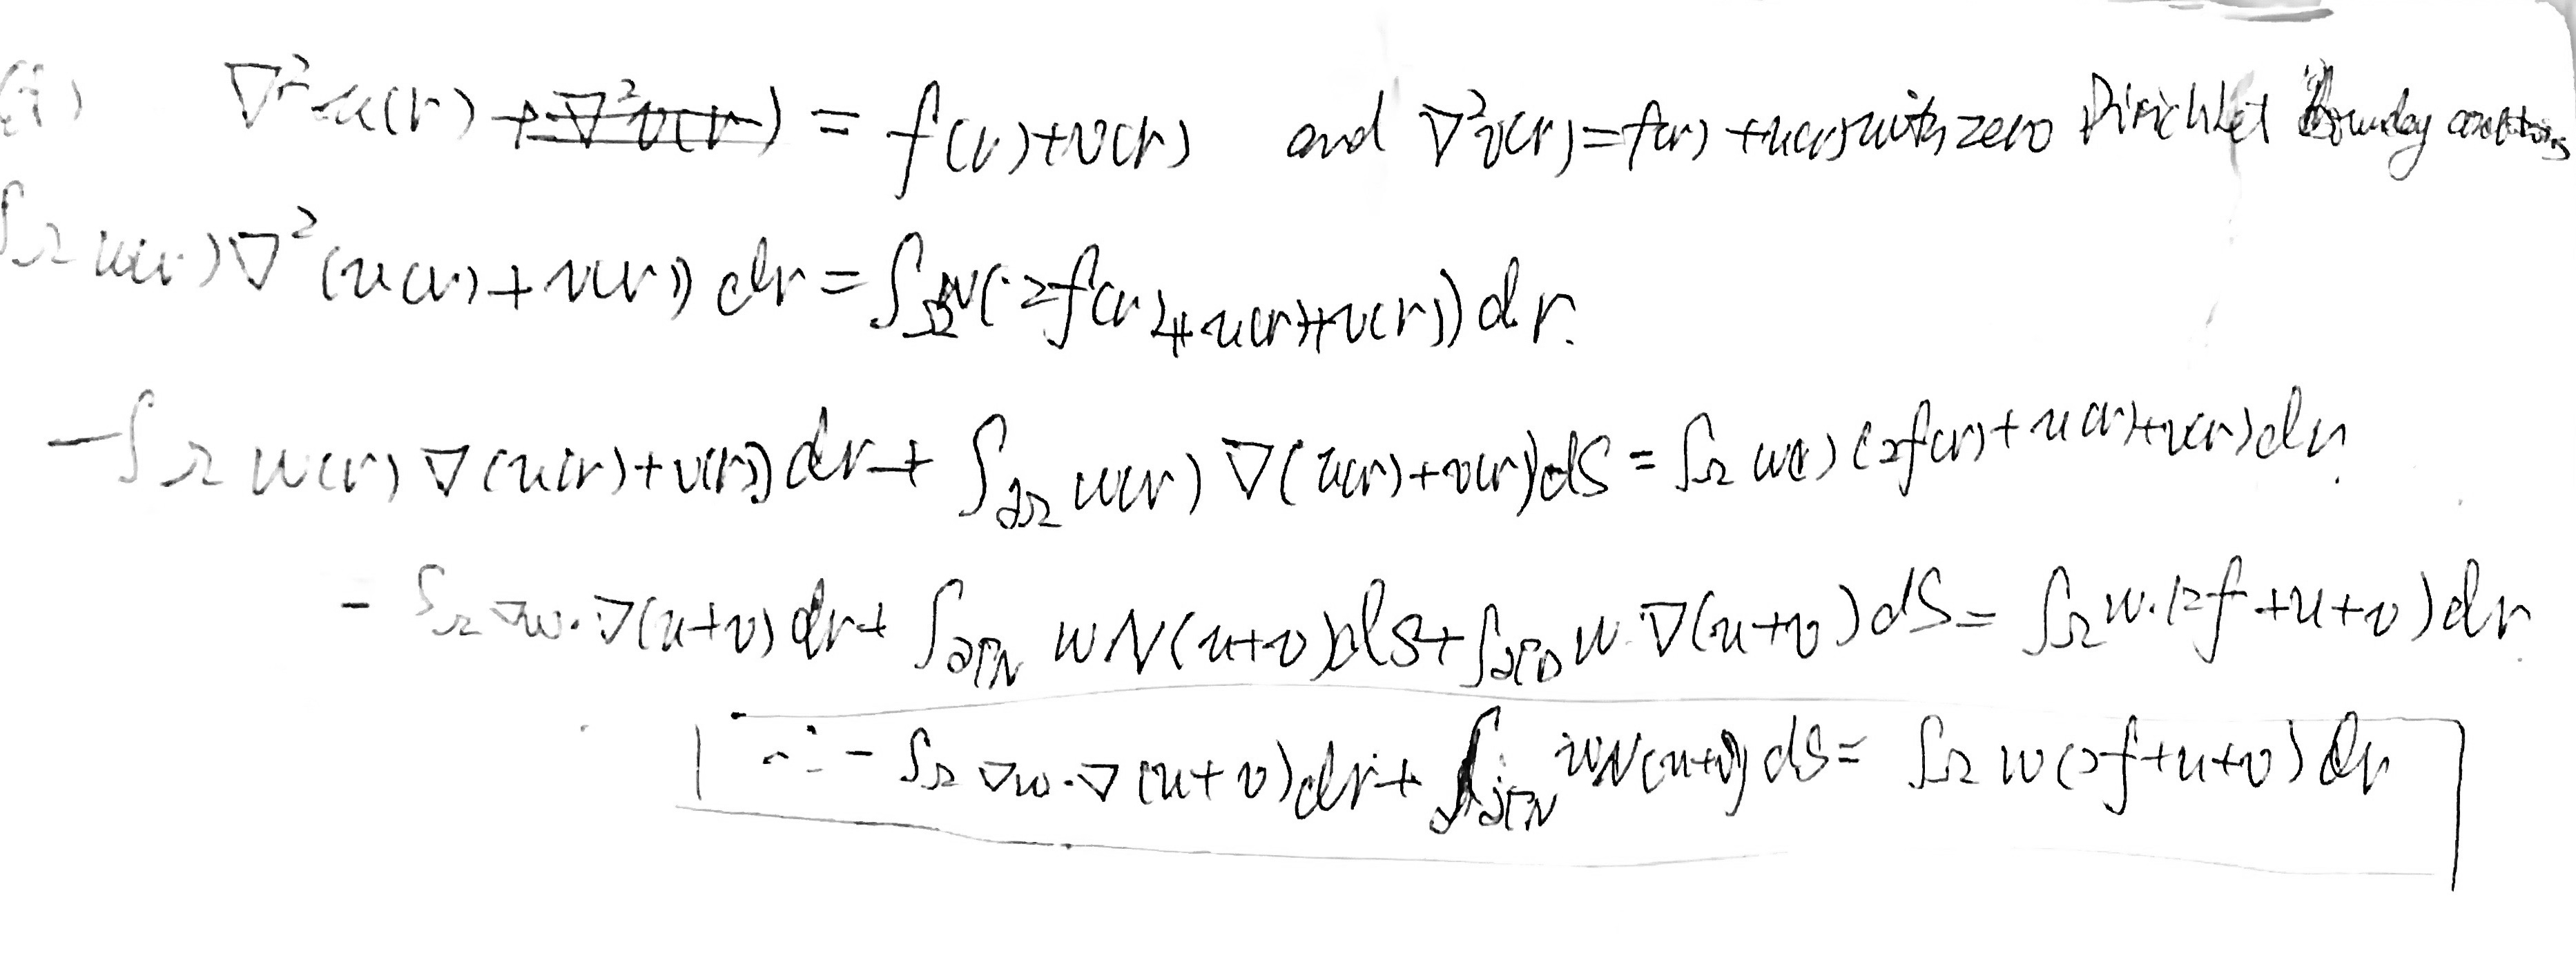 (i) ∇²u(r) + ∇²v(r) = f(r)+v(r) and ∇²v(r)=f(r)+u(r) with zero Dirichlet Boundary conditions
∫Ω w(r)∇²(u(r)+v(r)) dr = ∫Ω w(2f(r)+u(r)+v(r)) dr.
-∫Ω w(r) ∇(u(r)+v(r)) dr + ∫∂Ω w(r) ∇(u(r)+v(r)) dS = ∫Ω w(r) (2f(r)+u(r)+v(r)) dr.
- ∫Ω ∇w·∇(u+v) dr + ∫∂ΓN w N(u+v) ds + ∫∂ΓD w·∇(u+v) dS = ∫Ω w·(2f+u+v) dr.
∴ - ∫Ω ∇w·∇(u+v) dr + ∫∂ΓN w N(u+v) dS = ∫Ω w(2f+u+v) dr